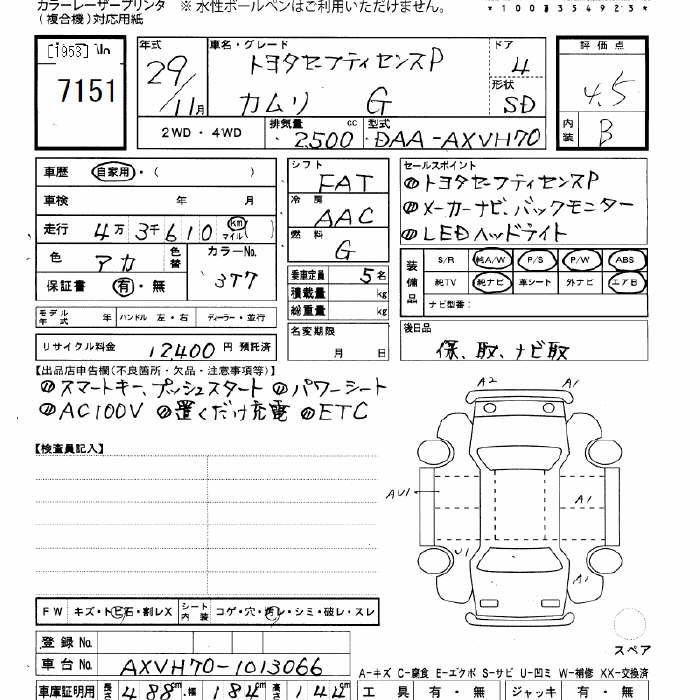 カラーレーザープリンタ ※ 水性ボールペンはご利用いただけません。
(複合機)対応用紙
*100354923*
[1953] No
7151
年式 車名・グレード ドア 評価点
29 トヨタセーフティセンスP 4 4.5
11月 カムリ G 形状 SD
2WD・4WD 排気量 2500 cc 型式 DAA-AXVH70 内装 B
車歴 自家用・( )
車検 年 月
走行 4万3千610 km マイル
色 アカ 色替 カラーNo. 3T7
保証書 有・無
モデル年式 年 ハンドル 左・右 ディーラー・並行
リサイクル料金 12,400円 預託済
シフト FAT
冷房 AAC
燃料 G
乗車定員 5名
積載量 kg
総重量 kg
名変期限 月 日
セールスポイント
トヨタセーフティセンスP
メーカーナビ、バックモニター
LEDヘッドライト
装備品 S/R 純A/W P/S P/W ABS
純TV 純ナビ 革シート 外ナビ エアB
ナビ型番:
後日品
保、取、ナビ取
【出品店申告欄(不良箇所・欠品・注意事項等)】
スマートキー、プッシュスタート パワーシート
AC100V 置くだけ充電 ETC
【検査員記入】
A2 A1
AU1 A1
U1 A1
スペア
FW キズ・トビ石・割レX シート内装 コゲ・穴・汚レ・シミ・破レ・スレ
登録 No.
車台 No. AXVH70-1013066
A-キズ C-腐食 E-エクボ S-サビ U-凹ミ W-補修 XX-交換済
車庫証明用 長さ 488cm 幅 184cm 高さ 144cm 工具 有・無 ジャッキ 有・無